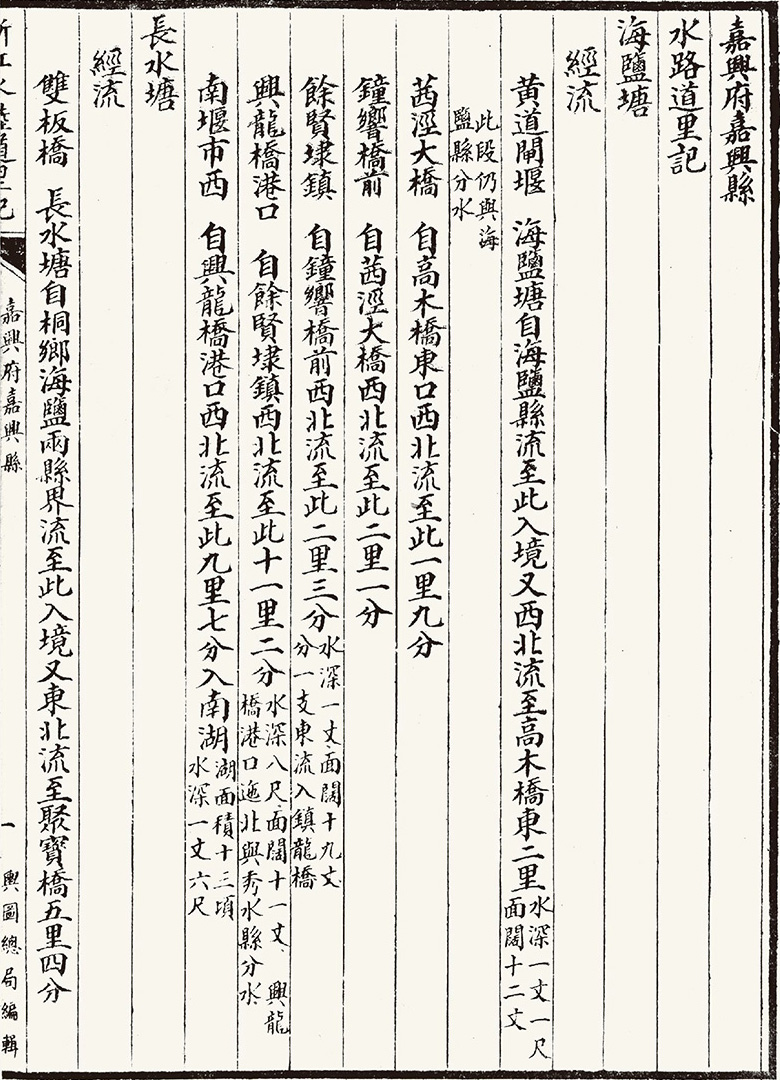 嘉興府嘉興縣
水路道里記
海鹽塘
經流
黃道閘堰 海鹽塘自海鹽縣流至此入境又西北流至高木橋東二里水深一丈一尺
面闊十二丈
此段仍與海
鹽縣分水
茜涇大橋 自高木橋東口西北流至此一里九分
鐘響橋前 自茜涇大橋西北流至此二里一分
餘賢埭鎮 自鐘響橋前西北流至此二里三分水深一丈面闊十九丈
分一支東流入鎮龍橋
興龍橋港口 自餘賢埭鎮西北流至此十一里二分水深八尺面闊十一丈興龍
橋港口迤北與秀水縣分水
南堰市西 自興龍橋港口西北流至此九里七分入南湖湖面積十三頃
水深一丈六尺
長水塘
經流
雙板橋 長水塘自桐鄉海鹽兩縣界流至此入境又東北流至聚寶橋五里四分
嘉興府嘉興縣
一
輿圖總局編輯